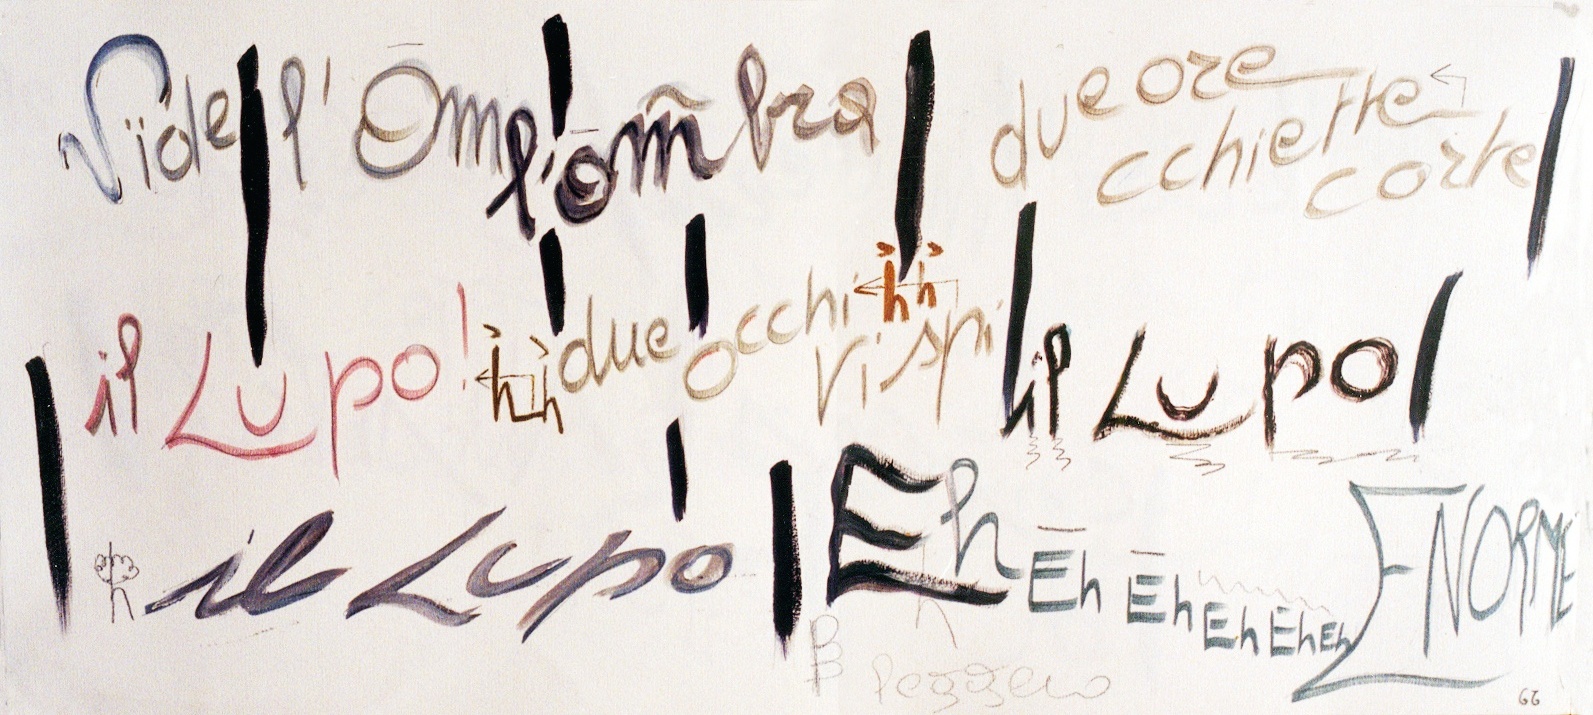 Vïde l' Ōm l'ōm̃bra due ore
cchiette
corte
il Lupo! ħħ due occhi ħħ
vispi
il Lupo
il Lupo Eh Ēh Ēh Eh Eh Eh ENORME
leggero
66